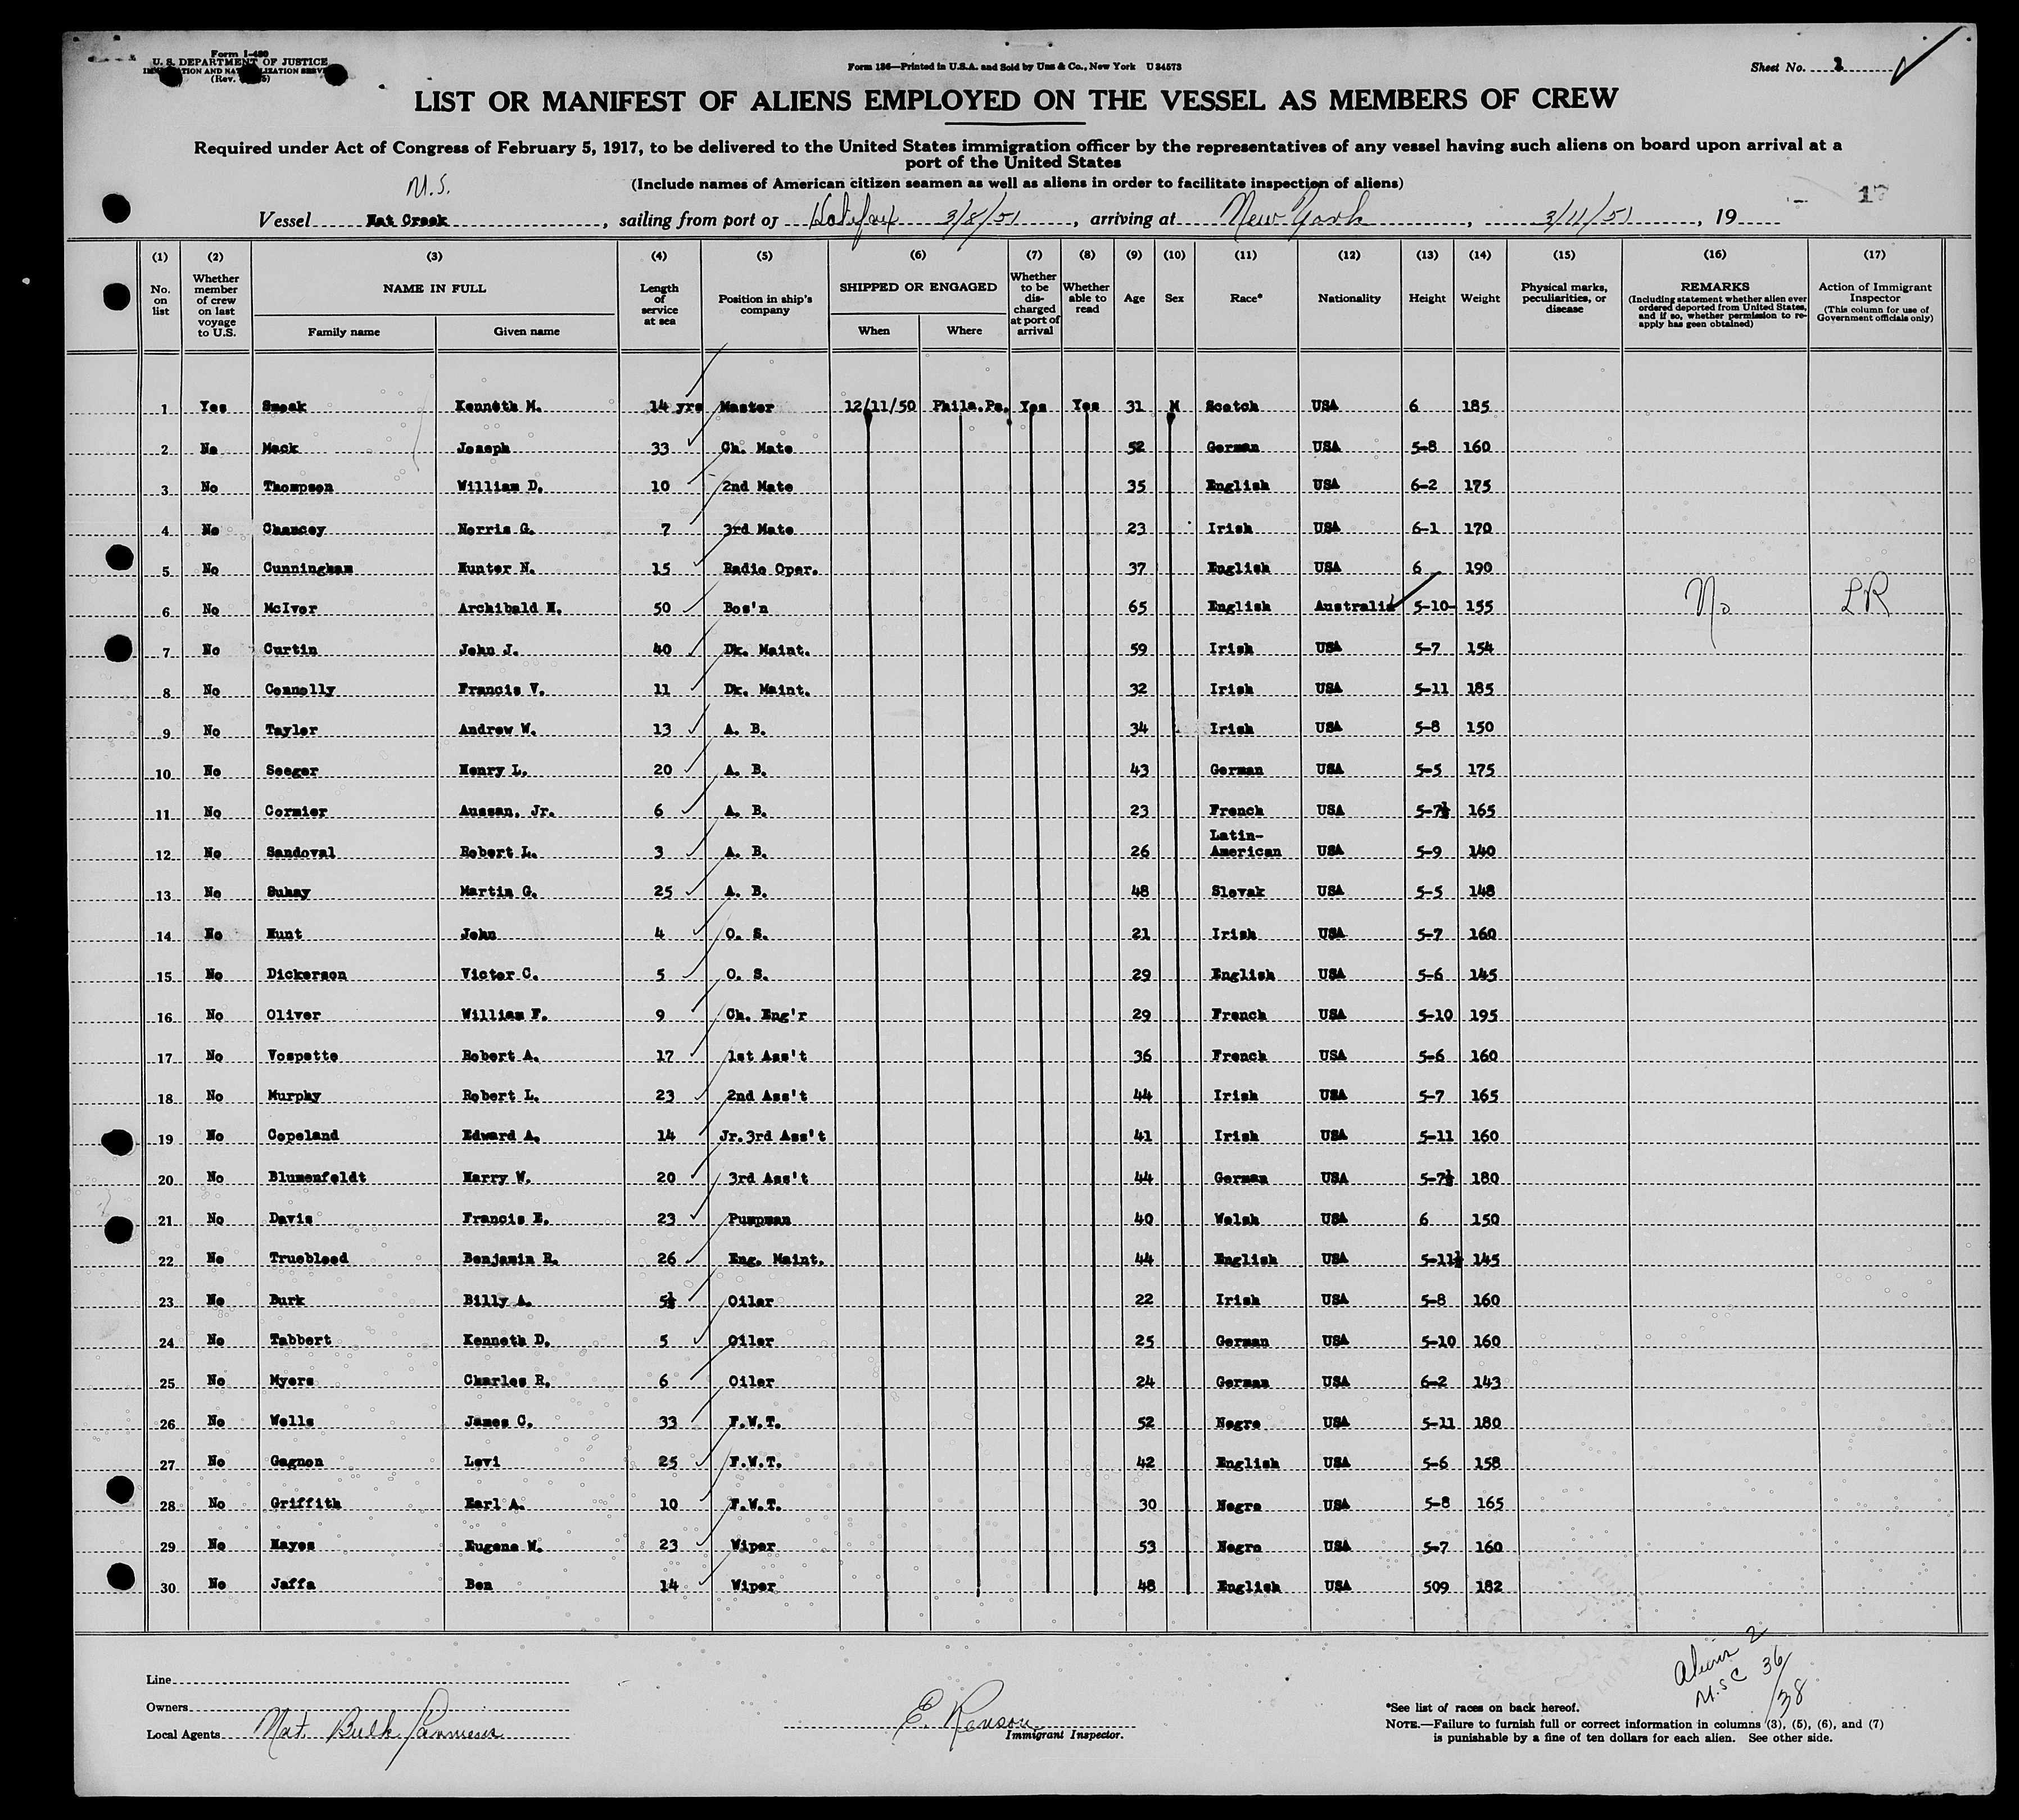 Form I-480
U. S. DEPARTMENT OF JUSTICE
(Rev.
Form 136—Printed in U.S.A. and Sold by Unz & Co., New York U 24573
Sheet No. 1
LIST OR MANIFEST OF ALIENS EMPLOYED ON THE VESSEL AS MEMBERS OF CREW
Required under Act of Congress of February 5, 1917, to be delivered to the United States immigration officer by the representatives of any vessel having such aliens on board upon arrival at a
port of the United States
(Include names of American citizen seamen as well as aliens in order to facilitate inspection of aliens)
Vessel Hat Creek, sailing from port of Halifax 3/8/51, arriving at New York, 3/11/51, 19
(1) (2) (3) (4) (5) (6) (7) (8) (9) (10) (11) (12) (13) (14) (15) (16) (17)
No. on list
Whether member of crew on last voyage to U.S.
NAME IN FULL
Family name
Given name
Length of service at sea
Position in ship's company
SHIPPED OR ENGAGED
When
Where
Whether to be dis- charged at port of arrival
Whether able to read
Age
Sex
Race*
Nationality
Height
Weight
Physical marks, peculiarities, or disease
REMARKS
(Including statement whether alien ever ordered deported from United States, and if so, whether permission to re- apply has geen obtained)
Action of Immigrant Inspector
(This column for use of Government officials only)
1 Yes Smeak Kenneth M. 14 yrs Master 12/11/50 Phila.Pa. Yes Yes 31 M Scotch USA 6 185
2 No Mack Joseph 33 Ch. Mate 52 German USA 5-8 160
3 No Thompson William D. 10 2nd Mate 35 English USA 6-2 175
4 No Chancey Norris G. 7 3rd Mate 23 Irish USA 6-1 170
5 No Cunningham Hunter N. 15 Radio Oper. 37 English USA 6 190
6 No McIver Archibald H. 50 Bos'n 65 English Australia 5-10- 155 No LR
7 No Curtin John J. 40 Dk. Maint. 59 Irish USA 5-7 154
8 No Connolly Francis V. 11 Dk. Maint. 32 Irish USA 5-11 185
9 No Taylor Andrew W. 13 A. B. 34 Irish USA 5-8 150
10 No Seeger Henry L. 20 A. B. 43 German USA 5-5 175
11 No Cormier Aussan, Jr. 6 A. B. 23 French USA 5-7½ 165
12 No Sandoval Robert L. 3 A. B. 26 Latin-American USA 5-9 140
13 No Suhay Martin G. 25 A. B. 48 Slovak USA 5-5 148
14 No Hunt John 4 O. S. 21 Irish USA 5-7 160
15 No Dickerson Victor C. 5 O. S. 29 English USA 5-6 145
16 No Oliver William F. 9 Ch. Eng'r 29 French USA 5-10 195
17 No Vospette Robert A. 17 1st Ass't 36 French USA 5-6 160
18 No Murphy Robert L. 23 2nd Ass't 44 Irish USA 5-7 165
19 No Copeland Edward A. 14 Jr.3rd Ass't 41 Irish USA 5-11 160
20 No Blumenfeldt Harry W. 20 3rd Ass't 44 German USA 5-7½ 180
21 No Davis Francis E. 23 Pumpman 40 Welsh USA 6 150
22 No Trueblood Benjamin R. 26 Eng. Maint. 44 English USA 5-11½ 145
23 No Burk Billy A. 5½ Oiler 22 Irish USA 5-8 160
24 No Tabbert Kenneth D. 5 Oiler 25 German USA 5-10 160
25 No Myers Charles R. 6 Oiler 24 German USA 6-2 143
26 No Wells James C. 33 F.W.T. 52 Negro USA 5-11 180
27 No Gagnon Levi 25 F.W.T. 42 English USA 5-6 158
28 No Griffith Earl A. 10 F.W.T. 30 Negro USA 5-8 165
29 No Hayes Eugene W. 23 Wiper 53 Negro USA 5-7 160
30 No Jaffa Ben 14 Wiper 48 English USA 509 182
Aliens 2
U.S C 36
/38
Line
Owners
Local Agents Nat. Bulk Carriers
E. Renson
Immigrant Inspector.
*See list of races on back hereof.
NOTE.—Failure to furnish full or correct information in columns (3), (5), (6), and (7)
is punishable by a fine of ten dollars for each alien. See other side.